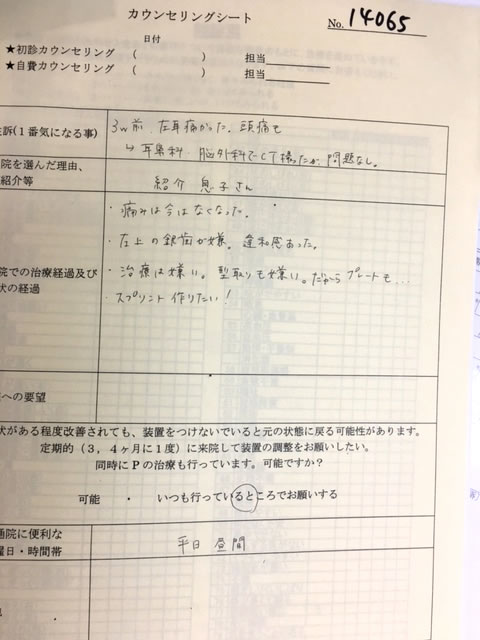 カウンセリングシート
No. 14065
日付
★初診カウンセリング ( ) 担当
★自費カウンセリング ( ) 担当
主訴(1番気になる事)
3w前、左耳痛かった。頭痛も
↳ 耳鼻科・脳外科でCT撮ったが問題なし。
院を選んだ理由、
紹介等
紹介 息子さん
・痛みは今はなくなった。
・左上の銀歯が嫌。違和感あった。
院での治療経過及び
状の経過
・治療は嫌い。型取りも嫌い。だからプレートも...
・スプリント作りたい!
への要望
状がある程度改善されても、装置をつけないでいると元の状態に戻る可能性があります。
定期的(3,4ヶ月に1度)に来院して装置の調整をお願いしたい。
同時にPの治療も行っています。可能ですか?
可能 ・ いつも行っているところでお願いする
通院に便利な
曜日・時間帯
平日 昼間